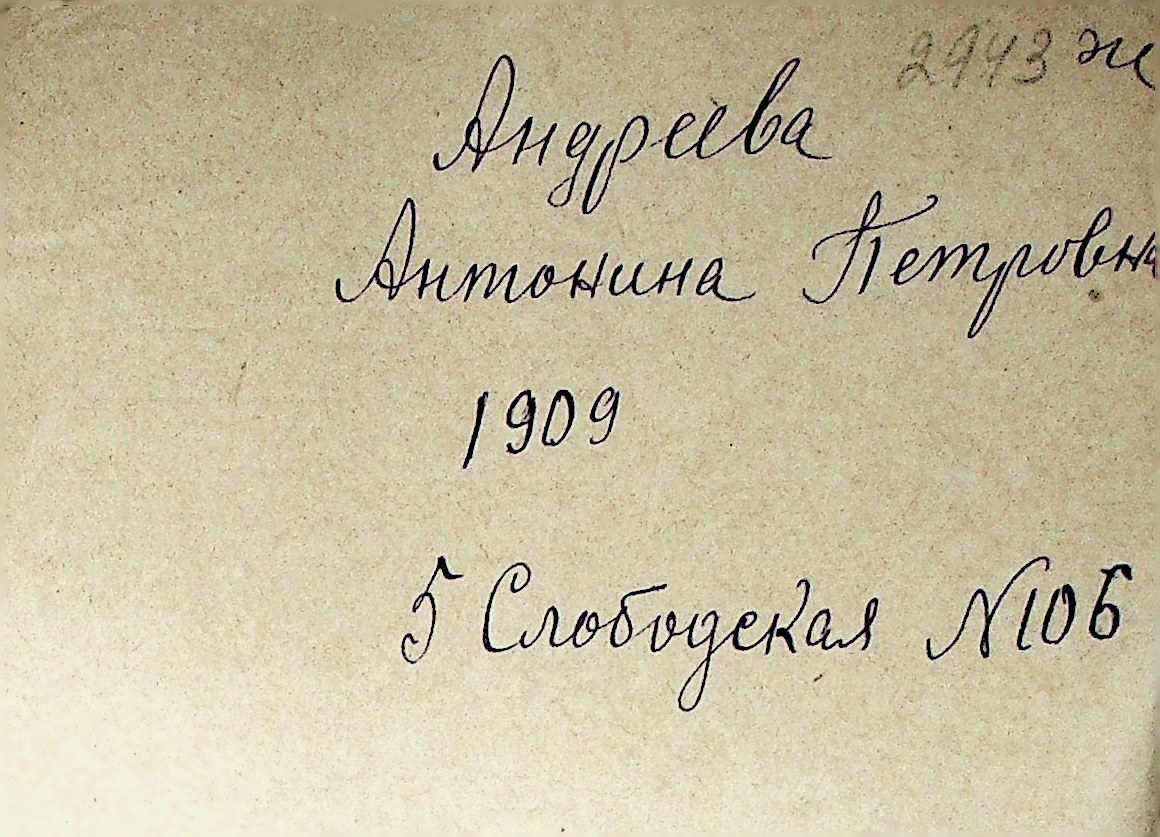 2943 ж
Андреева
Антонина Петровна
1909
5 Слободская №106